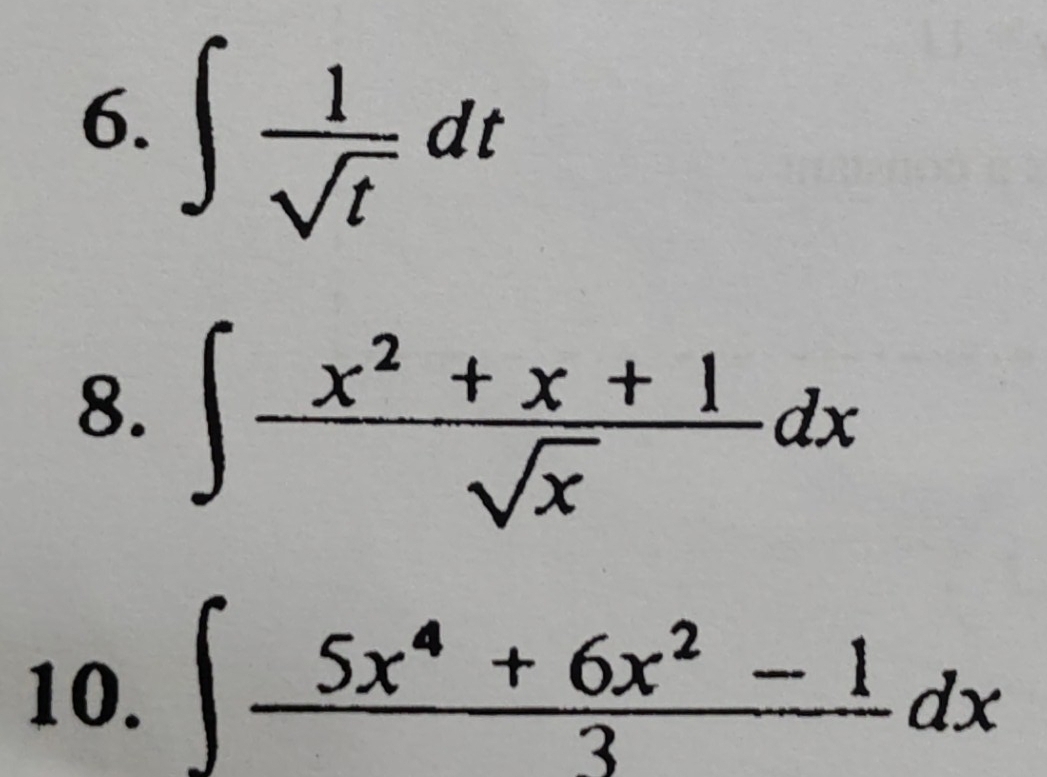 6. ∫ 1/√t dt
8. ∫ (x² + x + 1)/√x dx
10. ∫ (5x⁴ + 6x² − 1)/3 dx